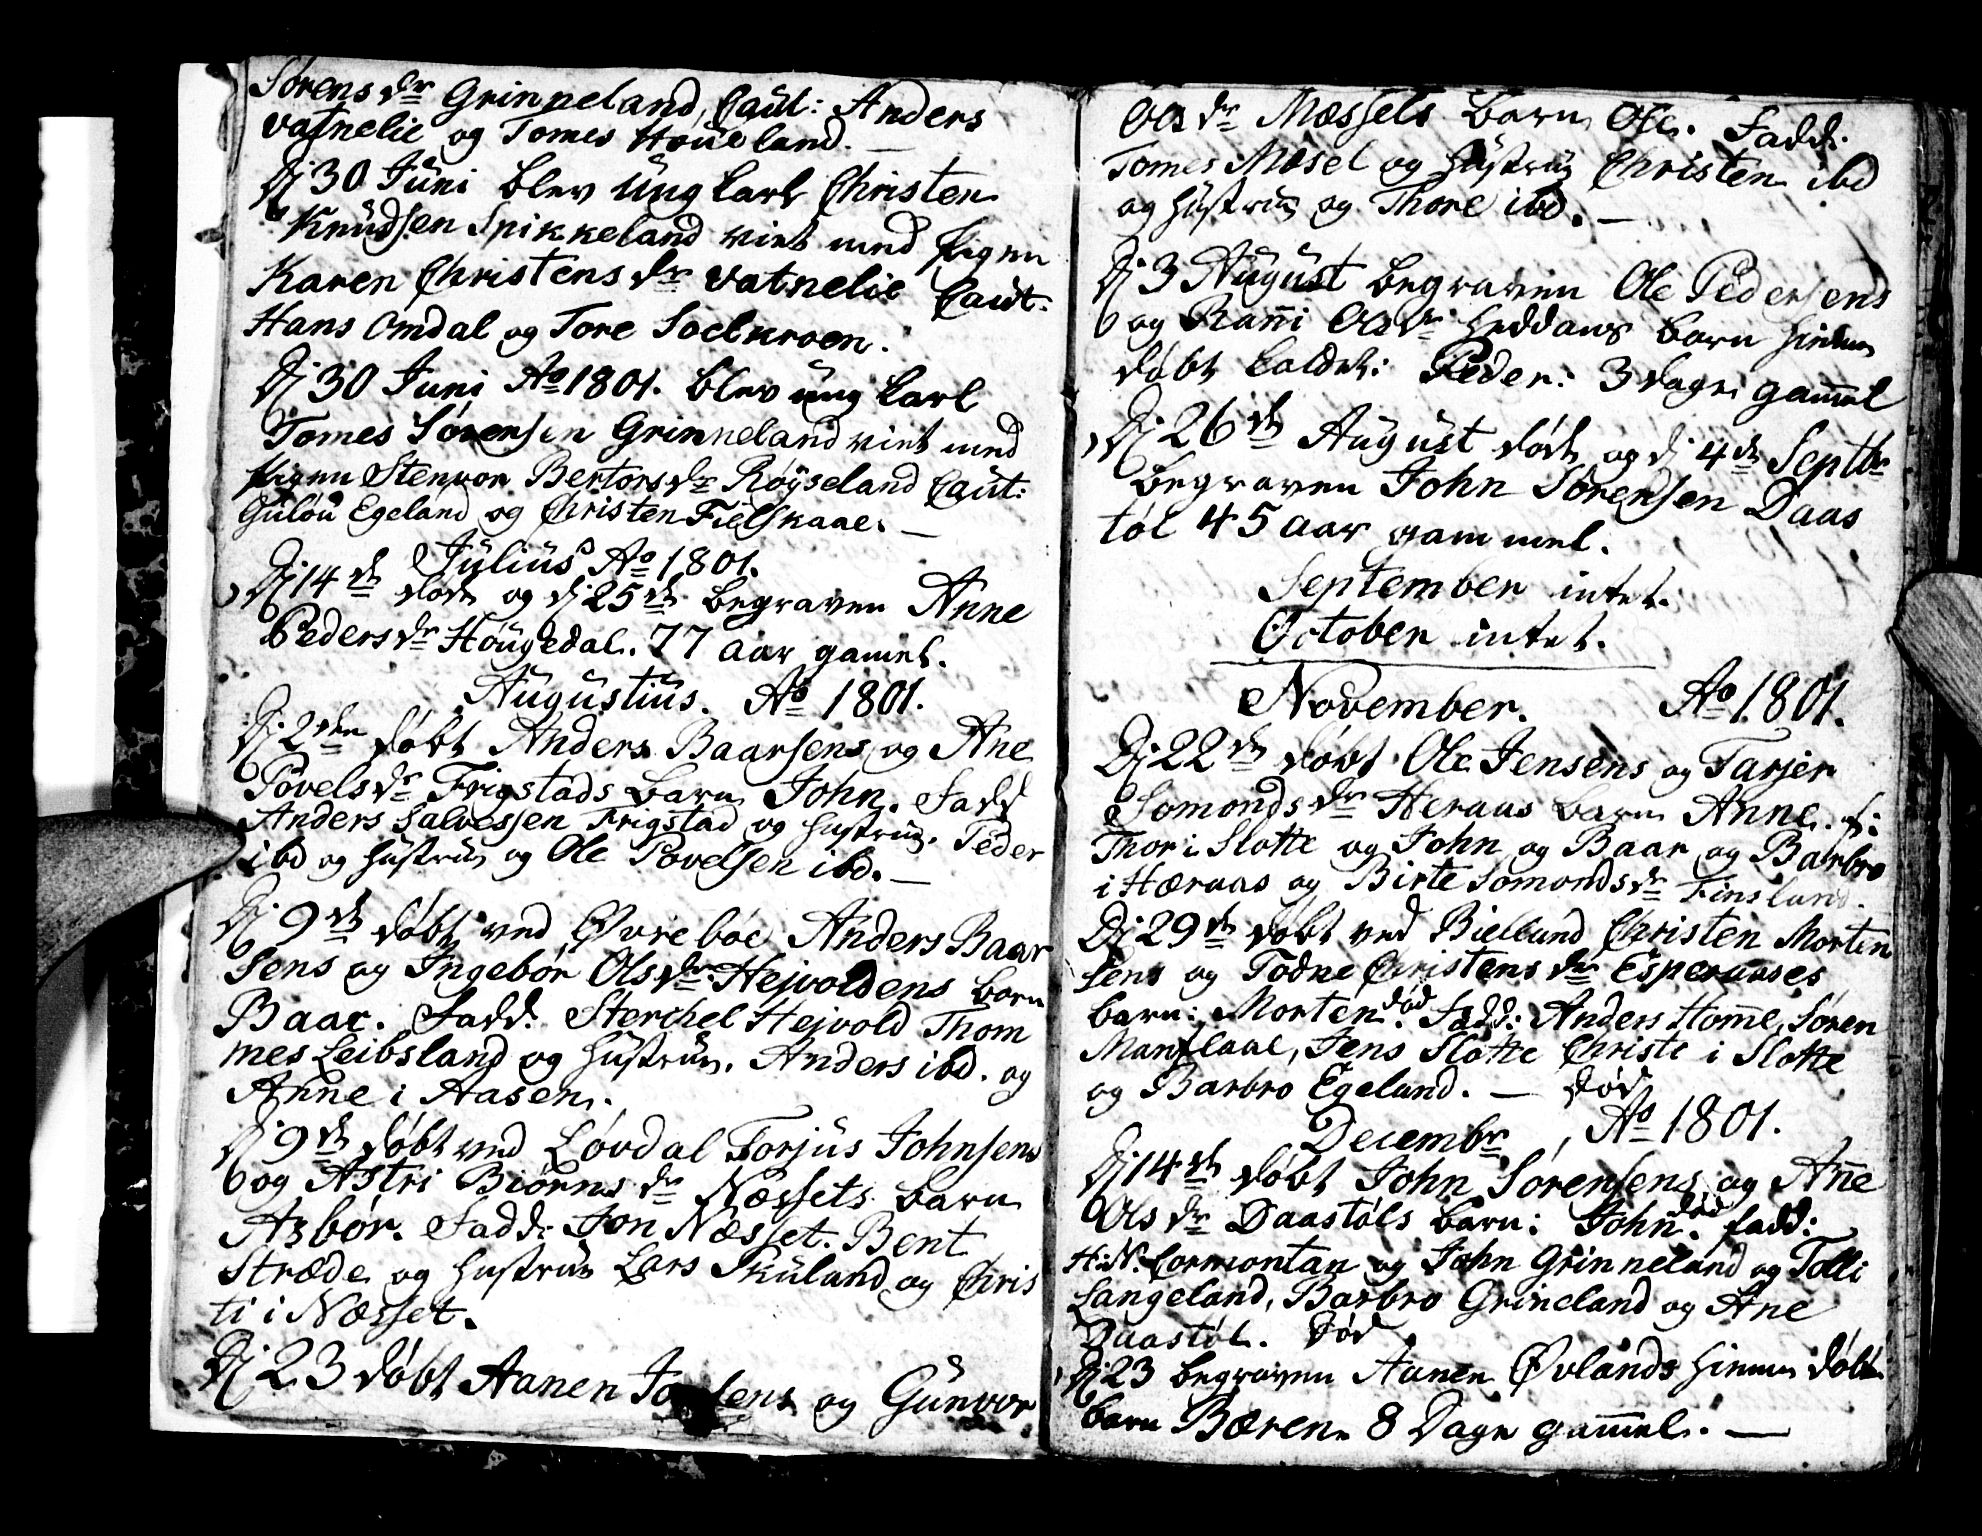 Sørens dr Grinneland, Caut: Anders
Vatnelie og Tomes Houeland. —
Dj 30 Juni blev Ung karl Christen
Knudsen Spikkeland viet med Pigen
Karen Christens dr Vatnelie Caut:
Hans Omdal og Tore Soelkroen.
Dj 30 Juni Ao 1801. blev ung karl
Tomes Sørensen Grinneland viet med
Pigen Stenvor Bertors dr Røyseland Caut:
Gulou Egeland og Christen Fielskaae. —
Julius Ao 1801.
Dj 14de døde og dj 25de begraven Anne
Peders dr Hougedal. 77 aar gamel.
Augustius. Ao 1801.
Dj 2den døbt Anders Baarsens og Ane
Povels dr Frigstads barn John. Fadd
Anders Salvessen Frigstad og hustrue. Peder
ibd og hustrue og Ole Povelsen ibd. —
Dj 9de døbt ved Øvrebøe Anders Baar
sens og Ingebør Ols dr Hejvoldens barn
Baar. Fadd. Sterchel Hejvold Thom
mes Leibsland og hustrue. Anders ibd. og
Anne i Aasen.
Dj 9de døbt ved Løvdal Torjus Johnsens
og Astri Biørns dr Næssets barn
Asbør. Fadd: Jon Næsset. Bent
Stræde og hustrue Lars Skuland og Chris
ti i Næsset.
Dj 23 døbt Aanen og Gunvor
Ols dr Mæssels barn Ole. Fadd:
Tomes Mæsel og hustrue Christen ibd
og hustrue og Thore ibd. —
Dj 3 August begraven Ole Pedersens
og Ranni Ols dr Heddans barn hiemme
døbt kaldet: Peder: 3 dage gammel
Dj 26de August døde og dj 4de Septbr
begraven John Sørensen Daas
tøl 45 aar gammel.
September intet.
October intet.
November. Ao 1801.
Dj 22de døbt Ole Jensens og Tarjer
Somonds dr Heraas barn Anne. f:
Thor i Slotte og John og Baar og Barbro
i Hæraas og Birte Somonds dr Finsland.
Dj 29de døbt ved Bielland Christen Morten
sens og Todne Christens dr Esperaases
barn: Morten. død Fadd: Anders Homme, Søren
Manflaae, Jens Slotte Christe i Slotte
og Barbro Egeland. — død
Decembr, Ao 1801.
Dj 14de døbt John Sørensens og Anne
Ols dr Daastøls barn: John. død fadd:
H: N. Cormontan og John Grinneland og Tolli
Langeland, Barbro Grineland og Ane
Daastøl. død
Dj 23 begraven Aanen Øvlands hiemme døbt
barn Bæren 8 Dage gammel. —